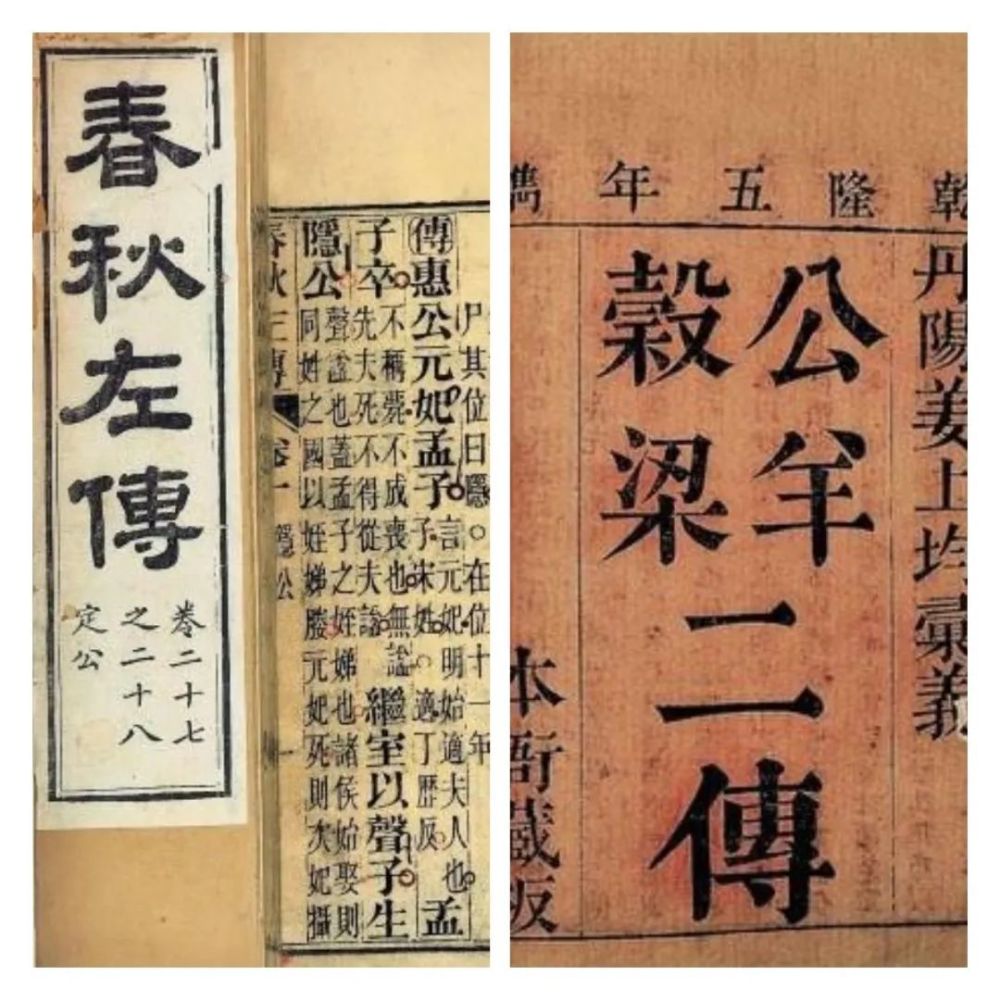 春秋左傳
卷二十七
之二十八
定公
尸其位曰隱在位十一年
傳惠公元妃孟子言元妃明始適夫人也子宋姓適丁歷反孟
子卒不稱薨不成喪也無諡先夫死不得從夫諡繼室以聲子生
隱公聲諡也蓋孟子之姪娣也諸侯始娶則同姓之國以姪娣媵元妃死則次妃攝
春秋三傳 卷一 隱公 一
乾隆五年鐫
丹陽姜上均彙義
公羊
穀梁
二傳
本衙藏板